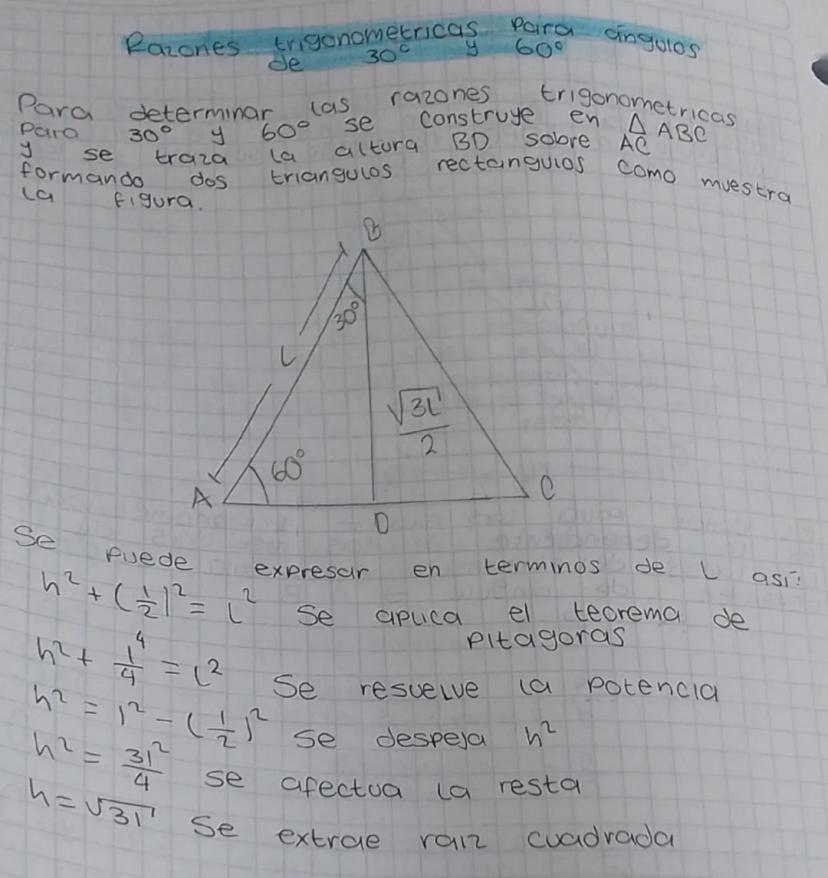 Razones trigonometricas para ángulos
de 30° y 60°
Para determinar las razones trigonometricas
para 30° y 60° se construye en △ ABC
y se traza la altura BD sobre AC
formando dos triangulos rectangulos como muestra
la figura.
B
30°
L
√3L
2
60°
A
C
D
Se puede expresar en terminos de L así:
h² + (1/2)² = L² Se aplica el teorema de
Pitagoras
h² + 1⁴/4 = L² Se resuelve la potencia
h² = l² - (1/2)² se despeja h²
h² = 3l²/4 se afectua la resta
h = √3l Se extrae raiz cuadrada